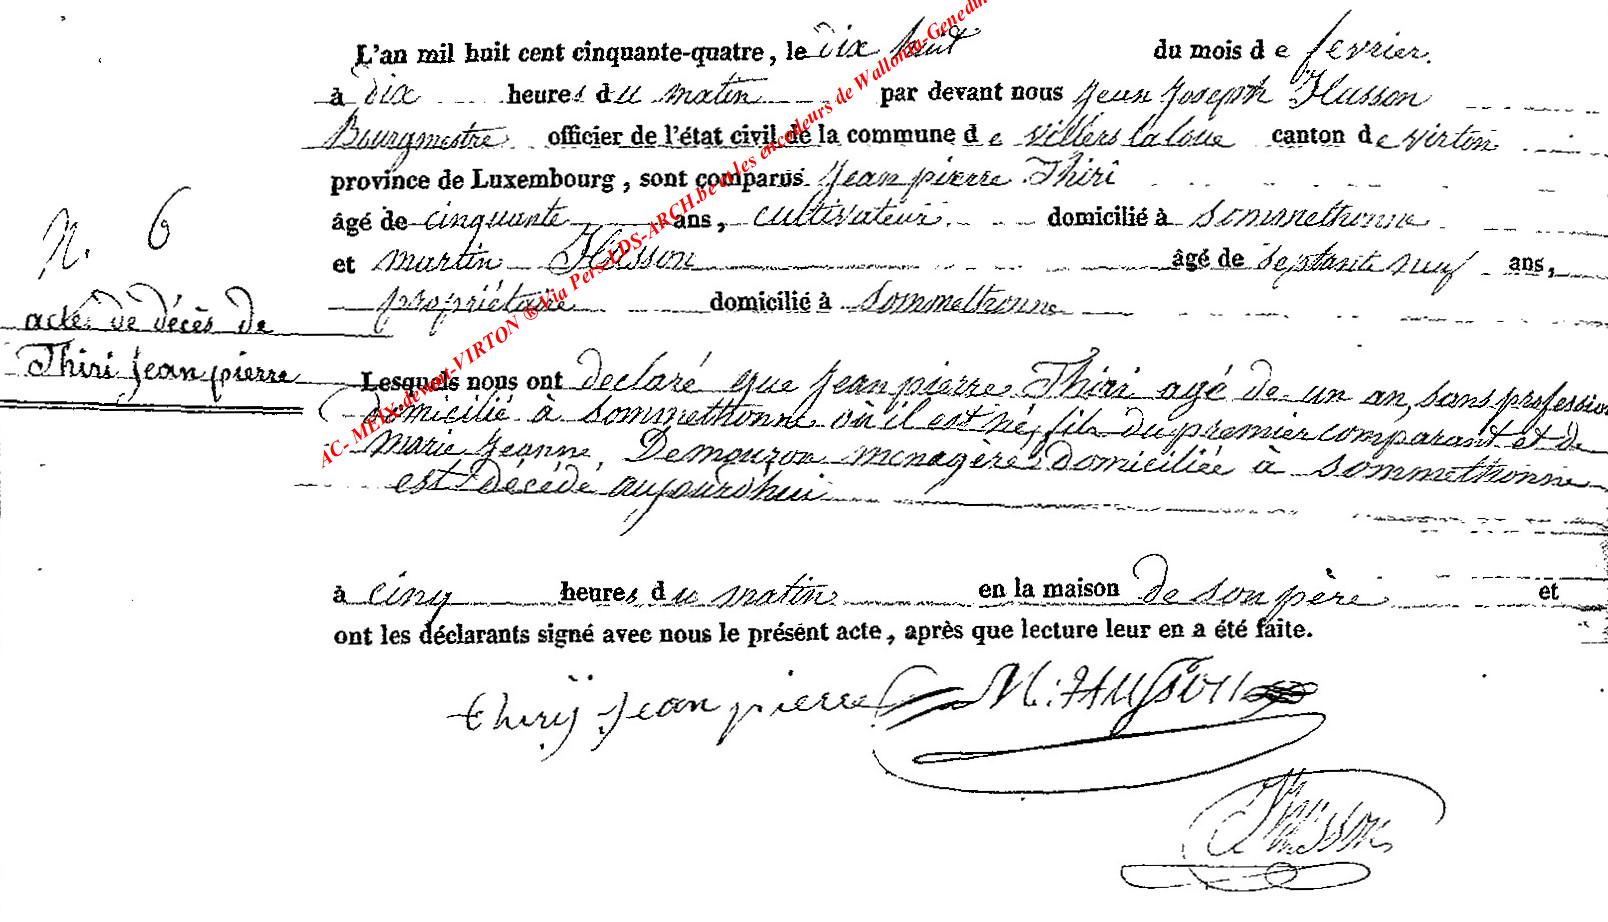 L'an mil huit cent cinquante-quatre, le dix huit du mois de fevrier.
à dix heures du matin par devant nous Jean Joseph Husson
Bourgmestre officier de l'état civil de la commune de villers la loue canton de virton
province de Luxembourg, sont comparus Jean pierre Thiri
âgé de cinquante ans, cultivateur domicilié à Sommethonne
et martin Husson âgé de septante neuf ans,
propriétaire domicilié à Sommethonne
N. 6
acte de décès de
Thiri Jean pierre
Lesquels nous ont déclaré que Jean pierre Thiri agé de un an, sans profession
domicilié à Sommethonne où il est né, fils du premier comparant et de
marie Jeanne Demouzon menagère domiciliée à Sommethonne
est décédé aujourd'hui
à cinq heures du matin en la maison de son père et
ont les déclarants signé avec nous le présent acte, après que lecture leur en a été faite.
thirÿ Jean pierre M: Husson
Husson
AC- MEIX-devant-VIRTON ® Via Pers-LDS-ARCH.be et les encodeurs de Wallonia-Genedin